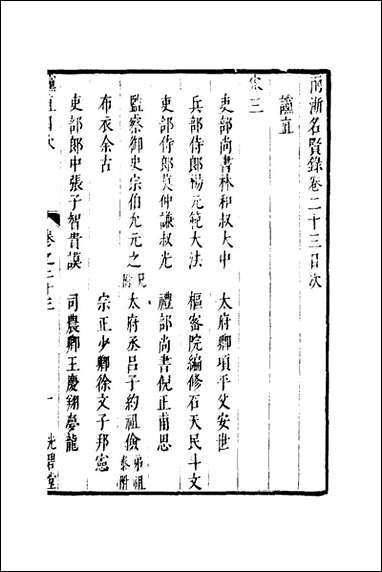 兩浙名賢錄卷二十三目次
讜直
宋三
吏部尚書林和叔大中
太府卿項平父安世
兵部侍郎楊元範大法
樞密院編修石天民斗文
吏部侍郎莫仲謙叔光
禮部尚書倪正甫思
監察御史宗伯允元之兄附
太府丞呂子約祖儉弟祖泰附
布衣余古
宗正少卿徐文子邦憲
吏部郎中張子智貴謨
司農卿王慶翔夢龍
讜直目次
卷之二十三
一
光碧堂